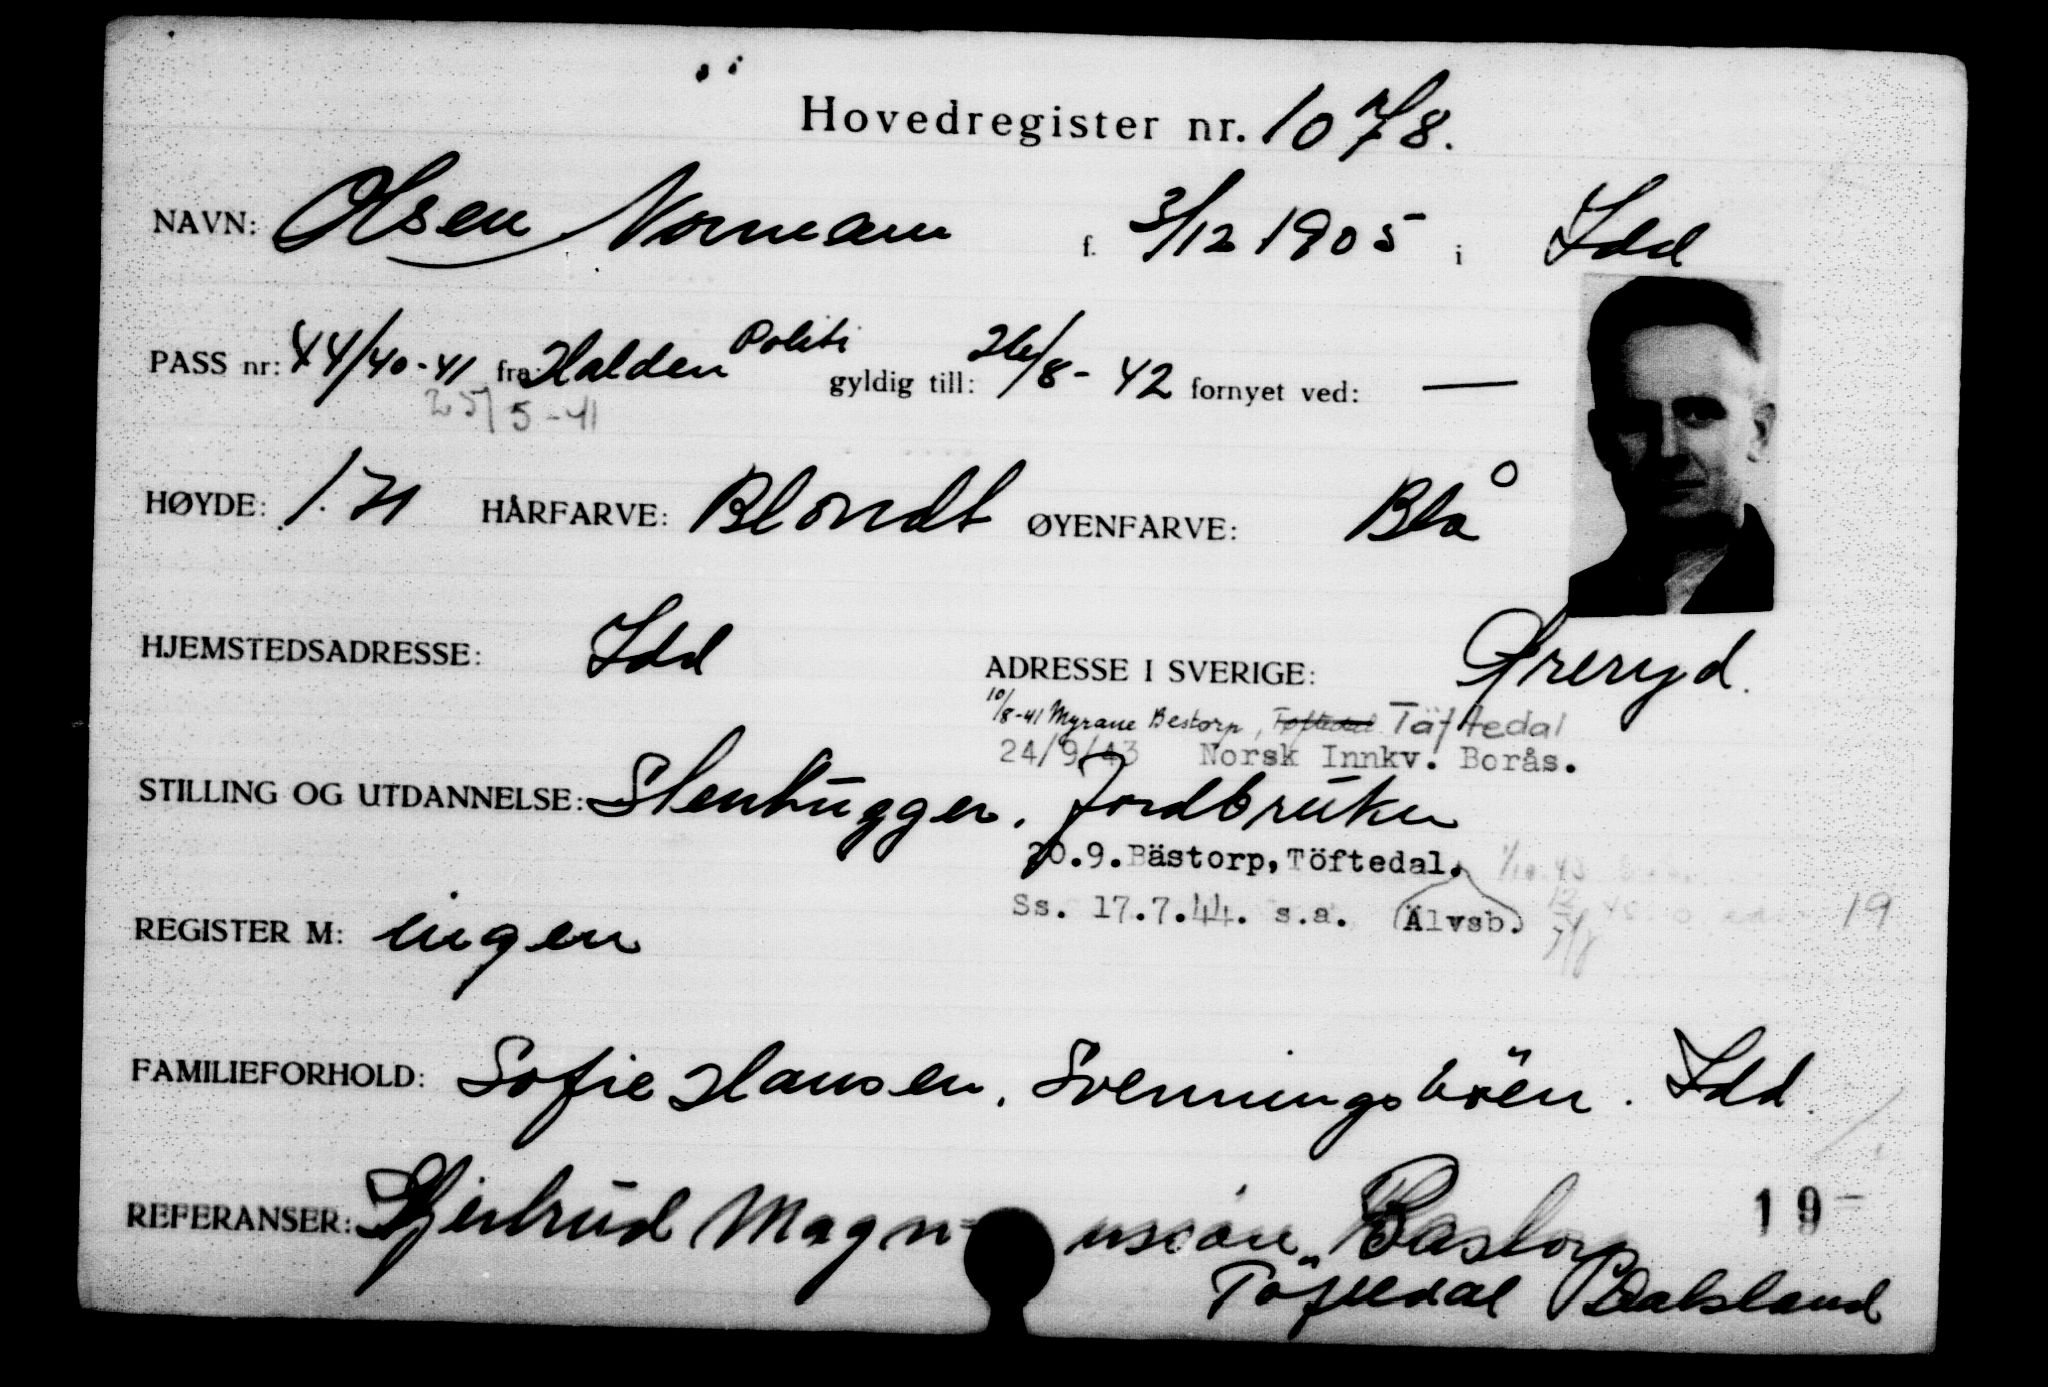 Hovedregister nr. 1078.
NAVN: Olsen Normann f. 3/12 1905 i Idd
PASS nr: 44/40-41 fra: Halden Politi gyldig till: 26/8-42 fornyet ved: —
25/5-41
HØYDE: 1.71 HÅRFARVE: Blondt ØYENFARVE: Blå
HJEMSTEDSADRESSE: Idd ADRESSE I SVERIGE: Øreryd.
10/8-41 Myrane Bestorp, Tøftedal Täftedal
24/9/43 Norsk Innkv. Borås.
STILLING OG UTDANNELSE: Stenhugger. Jordbruker
20.9. Bästorp, Töftedal.
Ss. 17.7.44. s.a. (Älvsb.) 19
REGISTER M: ingen
FAMILIEFORHOLD: Sofie Hansen, Svenningsböen. Idd.
REFERANSER: Gjertrud Magnusson, Bastorp 19-
Töftedal Dalsland